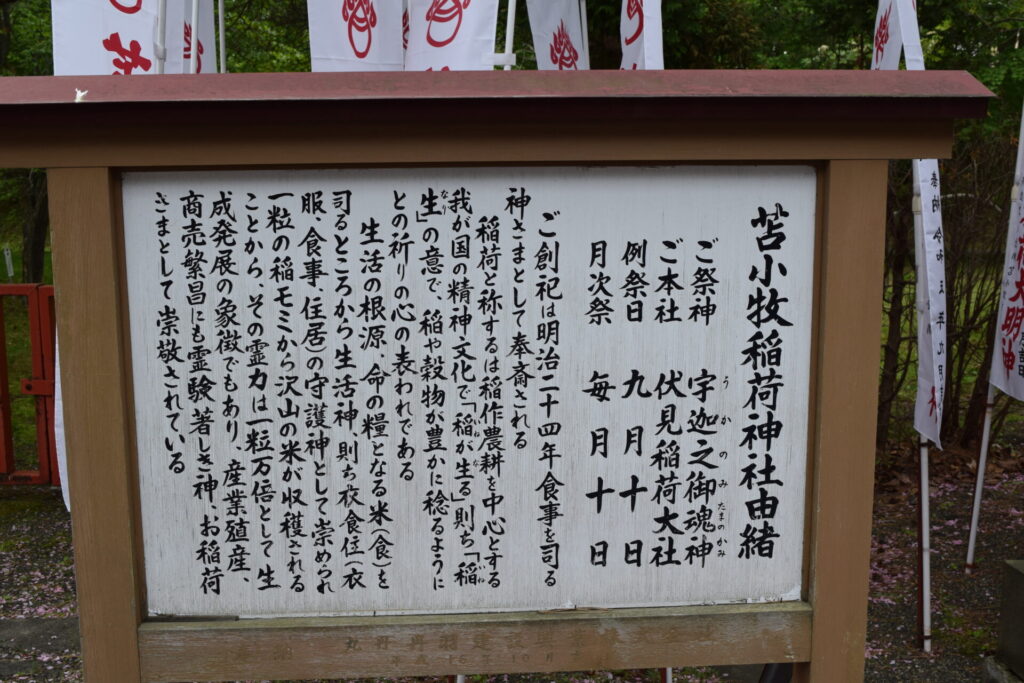 苫小牧稲荷神社由緒
ご祭神 宇迦之御魂神
うかのみたまのかみ
ご本社 伏見稲荷大社
例祭日 九月十日
月次祭 毎月十日
ご創祀は明治二十四年食事を司る
神さまとして奉斎される
稲荷と称するは稲作農耕を中心とする
我が国の精神文化で「稲が生る」則ち「稲
いね
生」の意で、稲や穀物が豊かに稔るように
なり
との祈りの心の表われである
生活の根源、命の糧となる米(食)を
司るところから生活神、則ち衣食住(衣
服、食事、住居)の守護神として崇められ
一粒の稲モミから沢山の米が収穫される
ことから、その霊力は一粒万倍として生
成発展の象徴でもあり、産業殖産、
商売繁昌にも霊験著しき神、お稲荷
さまとして崇敬されている
奉納 令和五年九月
大明神